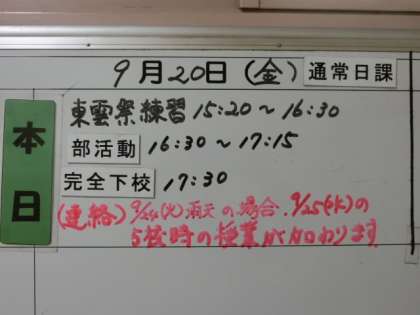 9月20日(金) 通常日課
本日
東雲祭練習 15:20〜16:30
部活動 16:30〜17:15
完全下校 17:30
(連絡) 9/24(火)雨天の場合、9/25(水)の
5校時の授業が加わります